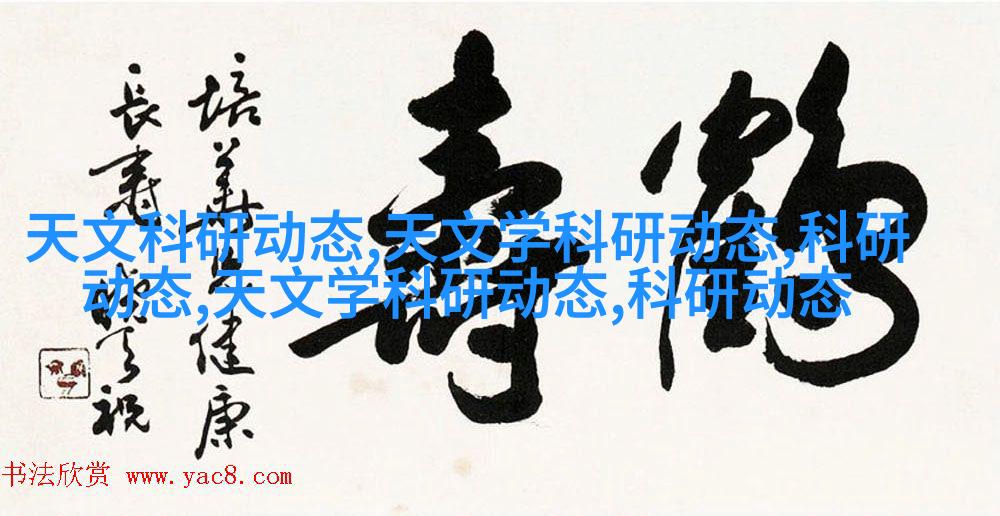 鶴壽
培萬兄健康
長壽
祝
天文科研动态,天文学科研动态,科研
动态,天文学科研动态,科研动态
书法欣赏 www.yac8.com